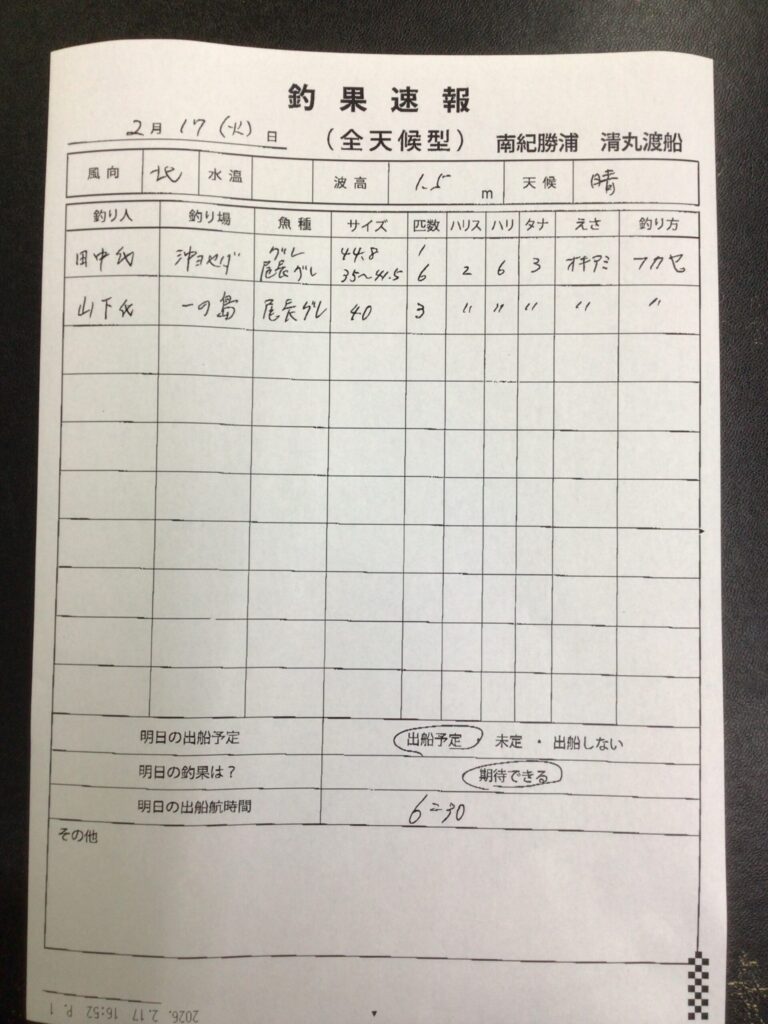 釣果速報
2月17(火)日 (全天候型) 南紀勝浦 清丸渡船
風向 北 水温 波高 1.5 m 天候 晴
釣り人 釣り場 魚種 サイズ 匹数 ハリス ハリ タナ えさ 釣り方
田中氏 沖ヨセダ グレ 44.8 1
尾長グレ 35〜41.5 6 2 6 3 オキアミ フカセ
山下氏 一の島 尾長グレ 40 3 〃 〃 〃 〃 〃
明日の出船予定 出船予定・未定・出船しない
明日の釣果は? 期待できる
明日の出船航時間 6=30
その他
2026. 2.17 16:52 P. 1